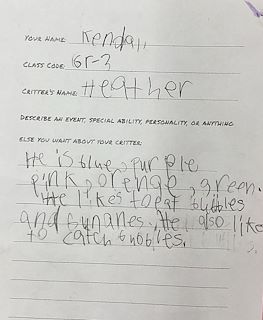 YOUR NAME: Kendall
CLASS CODE: Gr-3
CRITTER'S NAME: Heather
DESCRIBE AN EVENT, SPECIAL ABILITY, PERSONALITY, OR ANYTHING
ELSE YOU WANT ABOUT YOUR CRITTER:
He is blue, purple
pink, orenge, green.
He likes to eat bubbles
and bunanes. He also like
to catch bubbles. s.